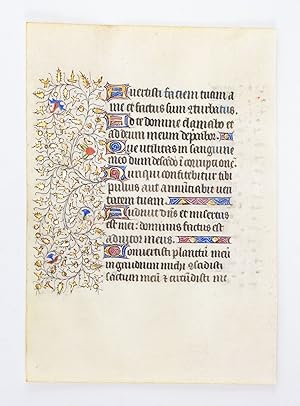 Avertisti faciem tuam a
me et factus sum cturbatus.
Ad te domine clamabo et
ad deum meum deprecabor.
Que utilitas in sanguine
meo dum descedo i corruptione.
Nunquid confitebitur tibi
pulvis aut annuciabit veri
tatem tuam.
Audivit dns et misertus
est mei: dominus factus est
adiutor meus.
Convertisti planctu meu
in gaudium michi
saccum meu et circudisti me